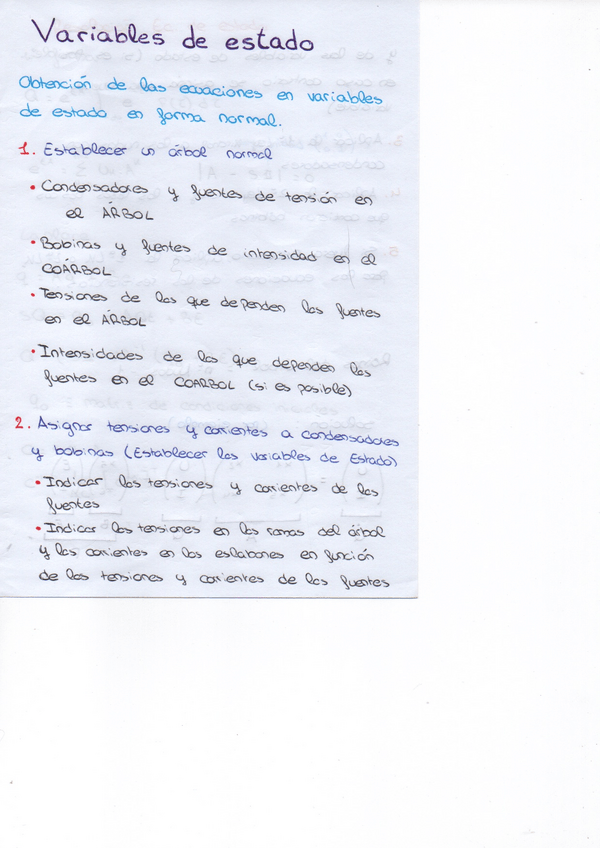 Variables de estado
Obtención de las ecuaciones en variables
de estado en forma normal.
1. Establecer un árbol normal
• Condensadores y fuentes de tensión en
el ÁRBOL
• Bobinas y fuentes de intensidad en el
COÁRBOL
• Tensiones de las que dependen las fuentes
en el ÁRBOL
• Intensidades de las que dependen las
fuentes en el COARBOL (si es posible)
2. Asignar tensiones y corrientes a condensadores
y bobinas (Establecer las variables de Estado)
• Indicar las tensiones y corrientes de las
fuentes
• Indicar las tensiones en las ramas del árbol
y las corrientes en los eslabones en función
de las tensiones y corrientes de las fuentes